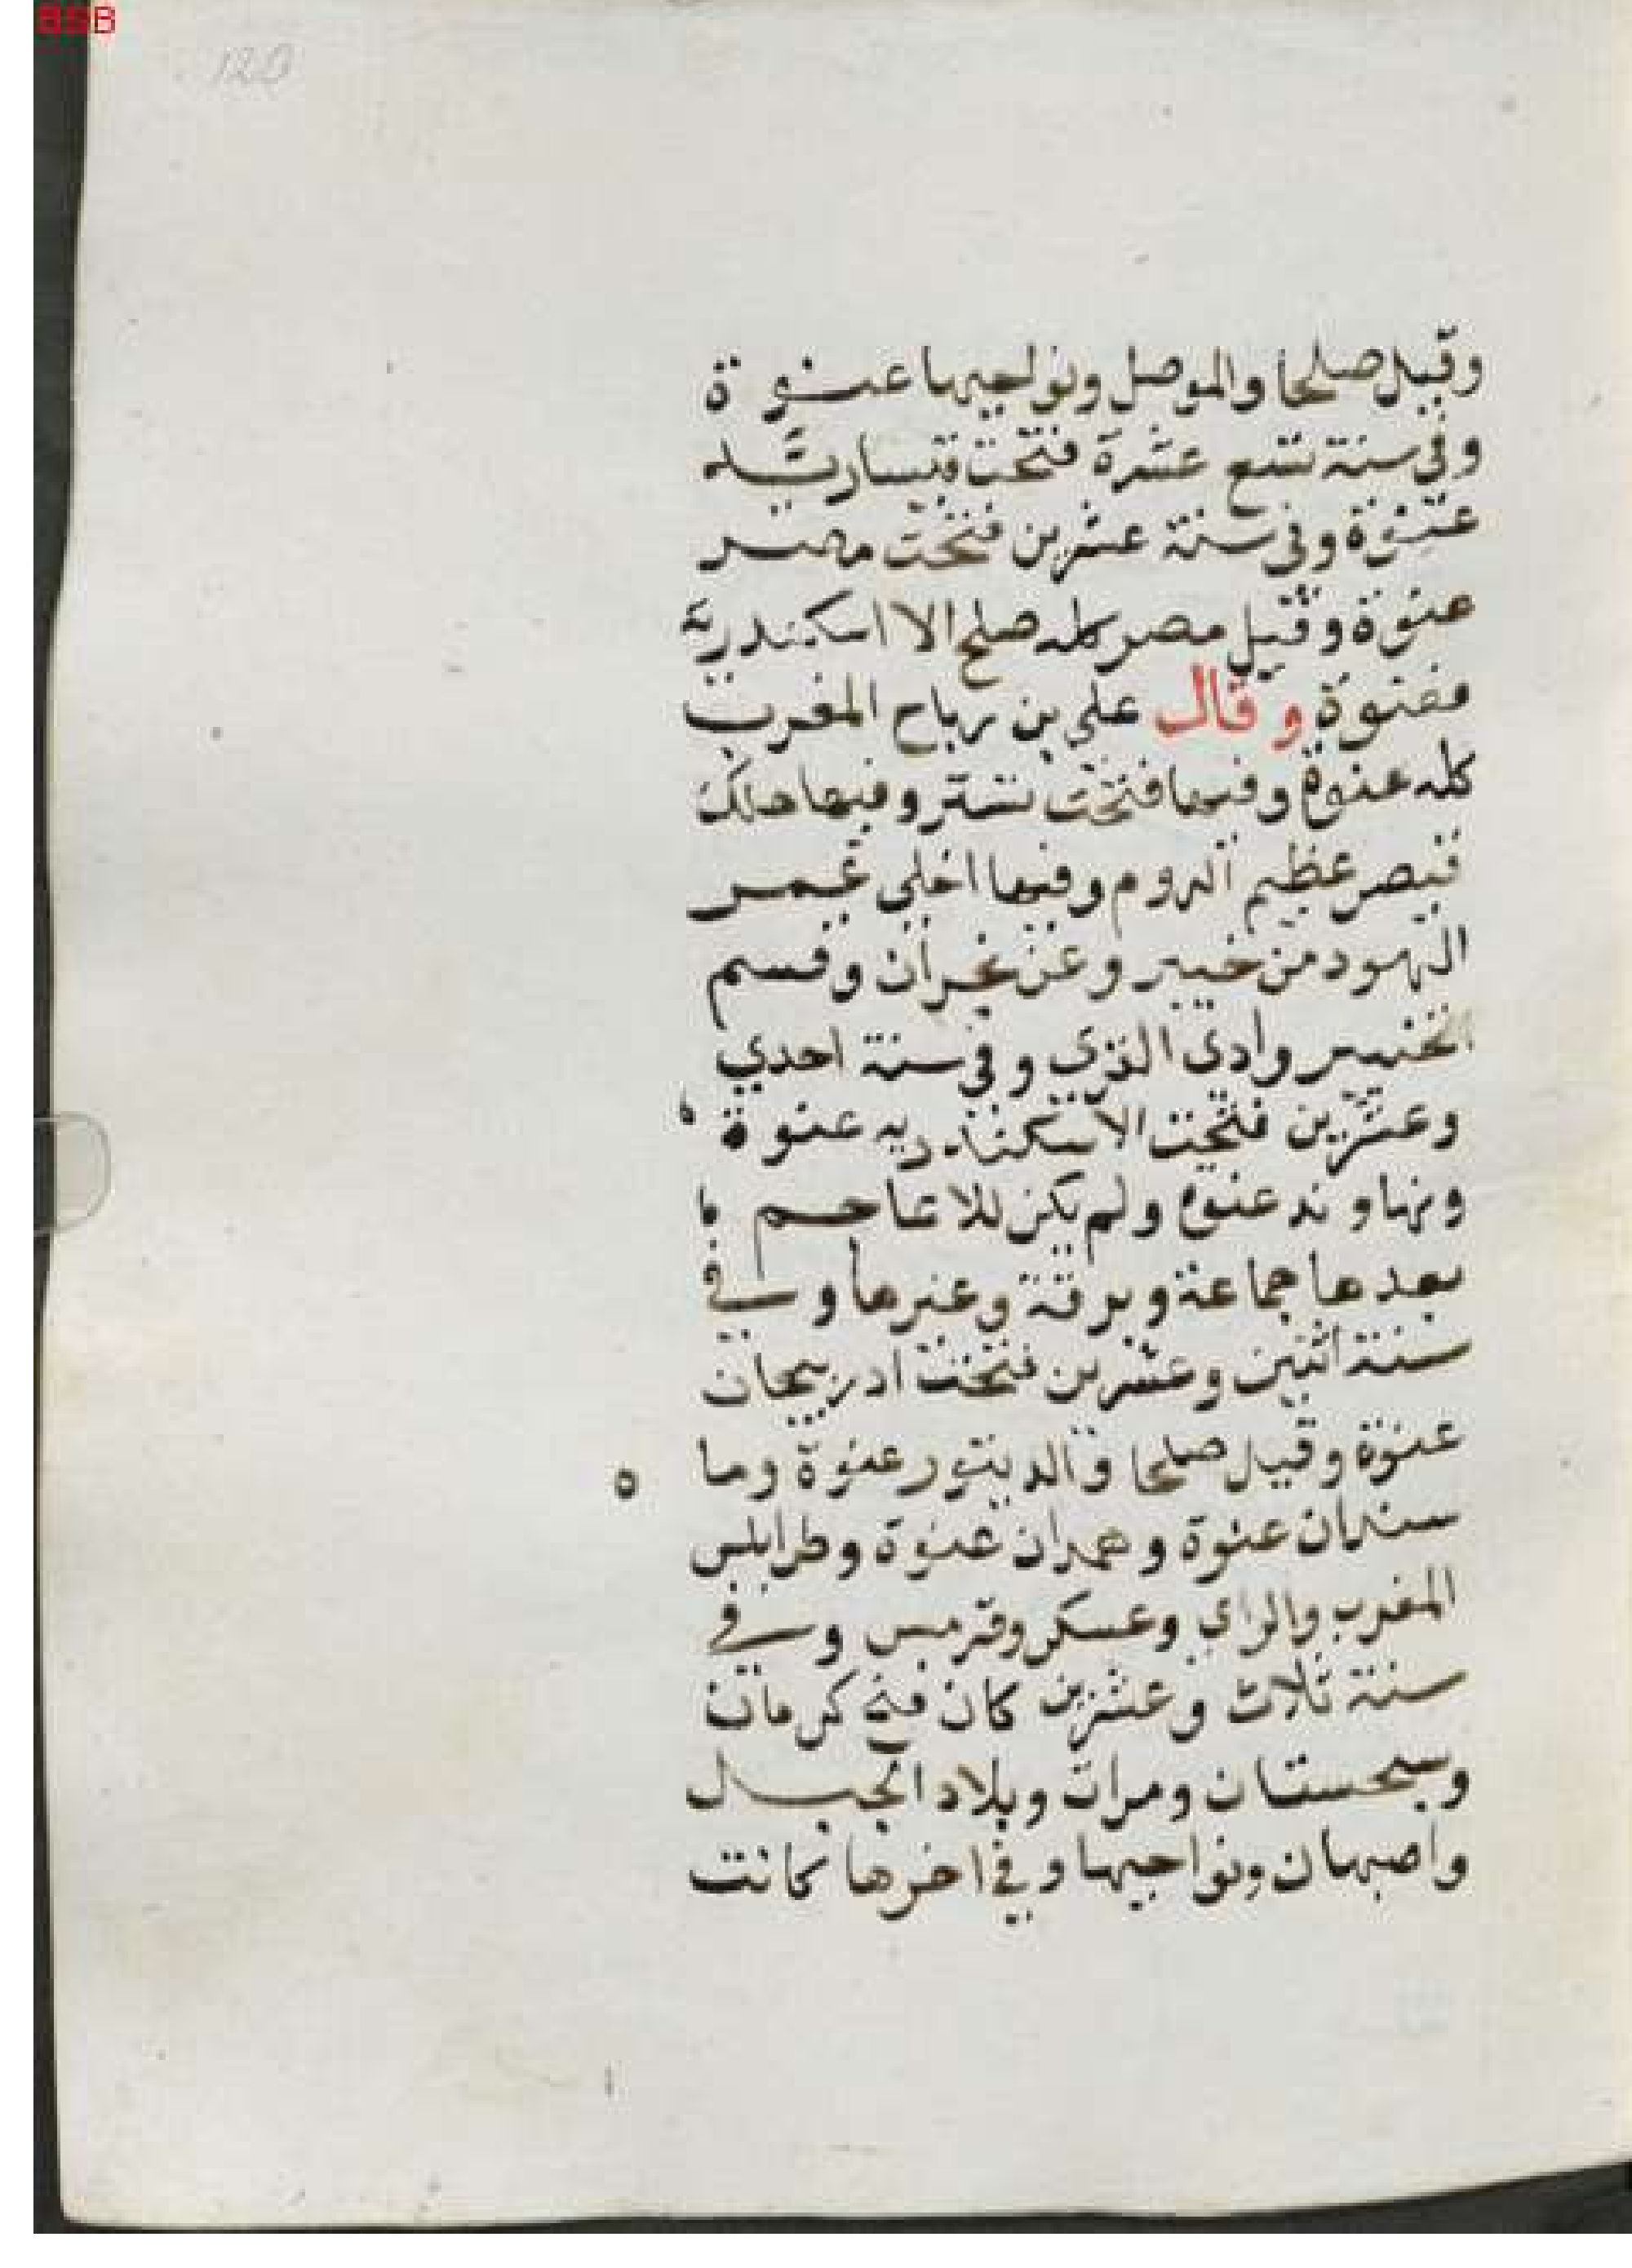 BSB
120
وقيل صلحا والموصل ونواحيها عنوة
وفي سنة تسع عشرة فتحت قيسارية
عنوة وفي سنة عشرين فتحت مصر
عنوة وقيل مصر كله صلح الا اسكندرية
فعنوة وقال علي بن رباح المغرب
كله عنوة وفيها فتحت تستر وفيها هلك
قيصر عظيم الروم وفيها اخلى عمر
اليهود من خيبر وعن نجران وقسم
خيبر وادي القرى وفي سنة احدي
وعشرين فتحت الاسكندريه عنوة
ونهاوند عنوة ولم يكن للاعاجم
بعدها جماعة وبرقة وغيرها وفي
سنة اثنين وعشرين فتحت ادربيجان
عنوة وقيل صلحا والدينور عنوة وما
سندان عنوة وهمدان عنوة وطرابلس
المغرب والراي وعسكر وقومس وفي
سنة ثلاث وعشرين كان فتح كرمان
وسجستان ومران وبلاد الجبل
واصبهان ونواحيها وفي اخرها كانت